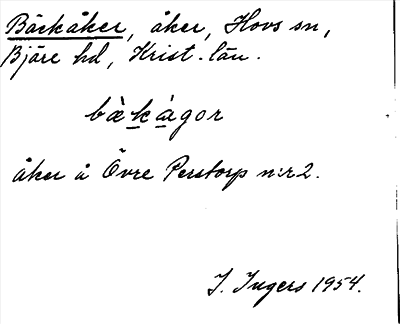 Bäckåker, åker, Hovs sn,
Bjäre hd, Krist. län.
bækágor
åker å Övre Perstorp n:r 2.
I. Ingers 1954.